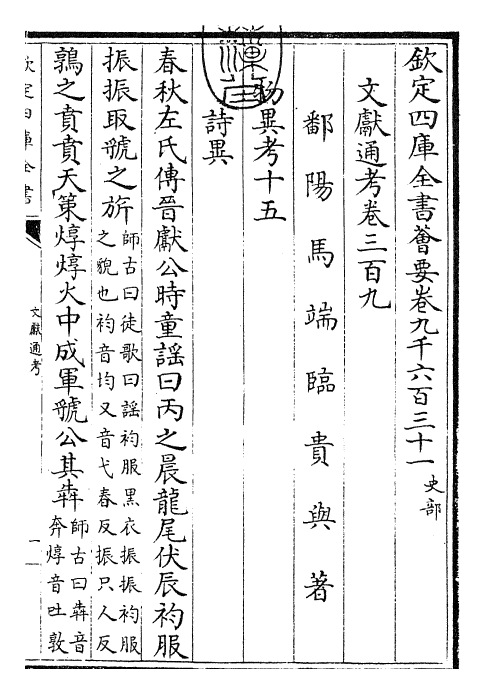 欽定四庫全書薈要卷九千六百三十一 史部
文獻通考卷三百九
鄱陽馬端臨貴與著
物異考十五
詩異
春秋左氏傳晉獻公時童謠曰丙之晨龍尾伏辰袀服
振振取虢之旂師古曰徒歌曰謠袀服黑衣振振袀服之貌也袀音均又音弋春反振只人反
鶉之賁賁天策焞焞火中成軍虢公其犇師古曰犇音奔焞音吐敦
欽定四庫全書
文獻通考
一